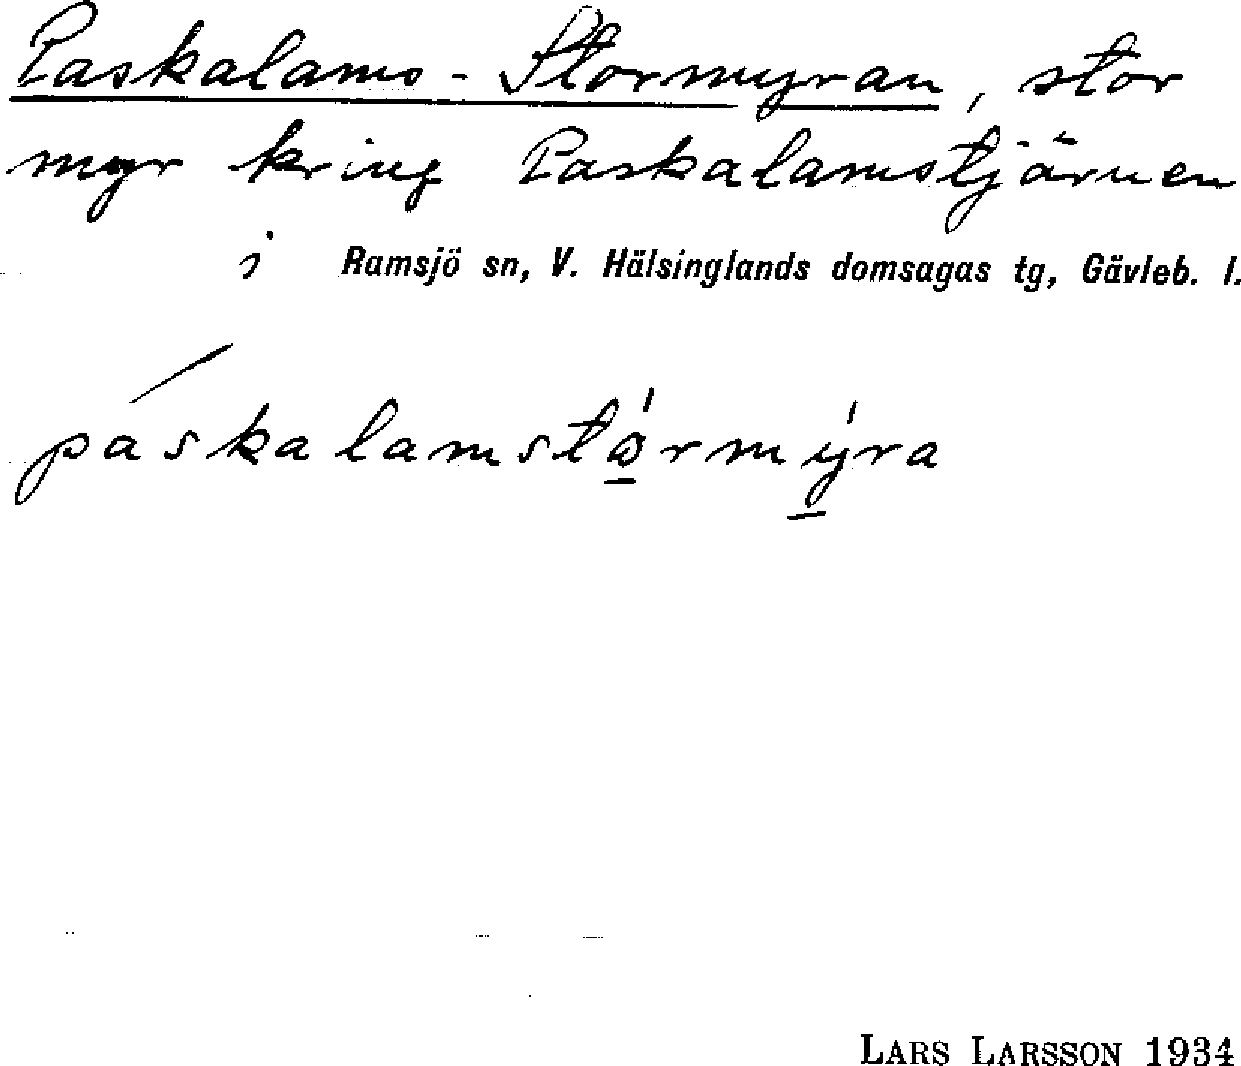 Paskalams-Stormyran, stor
myr kring Paskalamstjärnen
i Ramsjö sn, V. Hälsinglands domsagas tg, Gävleb. l.
páskalamstǿrmýra
LARS LARSSON 1934